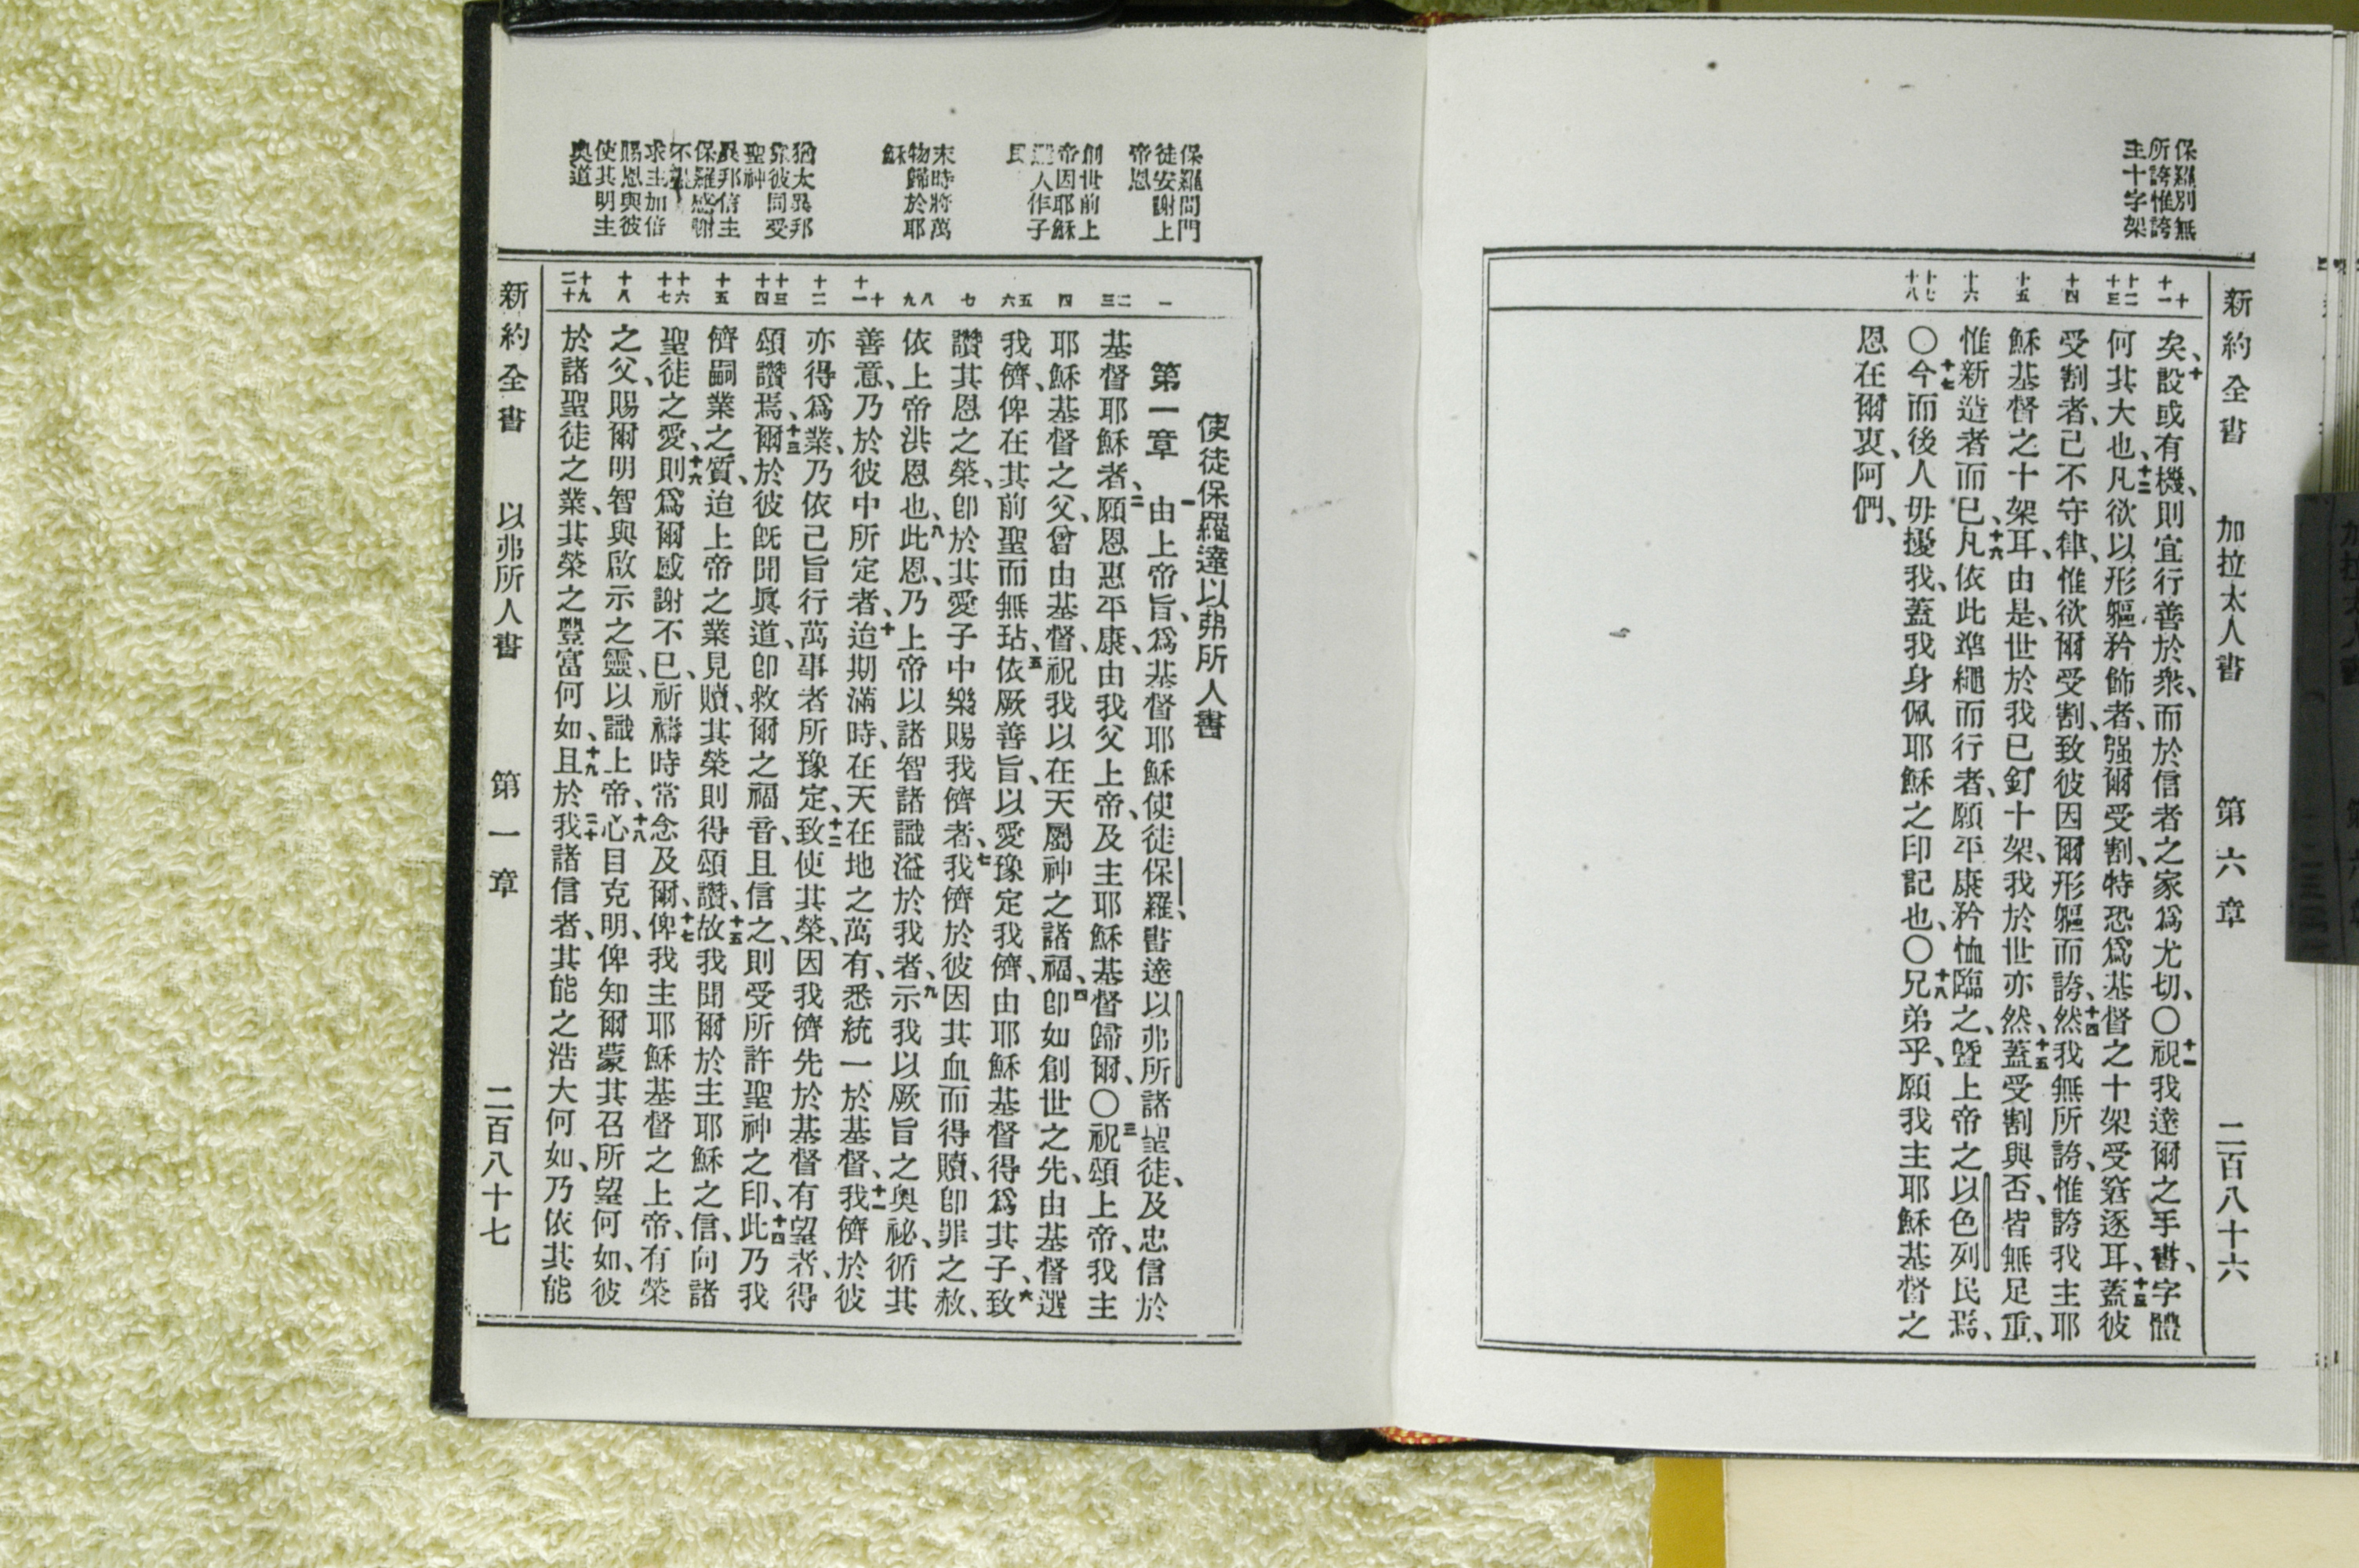 保羅別無
所誇惟誇
主十字架
新約全書 加拉太人書 第六章 二百八十六
十
十一
十二
十三
十四
十五
十六
十七
十八
矣、十設或有機、則宜行善於衆、而於信者之家爲尤切、〇十一視我達爾之手書、字體
何其大也、十二凡欲以形軀矜飾者、强爾受割、特恐爲基督之十架受窘逐耳、十三蓋彼
受割者、己不守律、惟欲爾受割、致彼因爾形軀而誇、十四然我無所誇、惟誇我主耶
穌基督之十架耳、由是、世於我已釘十架、我於世亦然、十五蓋受割與否、皆無足重、
惟新造者而已、十六凡依此準繩而行者、願平康矜恤臨之、曁上帝之以色列民焉、
〇十七今而後人毋擾我、蓋我身佩耶穌之印記也、〇十八兄弟乎、願我主耶穌基督之
恩在爾衷、阿們、
保羅問門
徒安謝上
帝恩
創世前上
帝因耶穌
人作子
民
末時將萬
物歸於耶
穌
猶太異邦
彼同受
聖神
異邦信主
保羅感謝
不
求主加倍
賜恩與彼
使其明主
奧道
一
二
三
四
五
六
七
八
九
十
十一
十二
十三
十四
十五
十六
十七
十八
十九
二十
使徒保羅達以弗所人書
第一章 一由上帝旨、爲基督耶穌使徒保羅、書達以弗所諸聖徒、及忠信於
基督耶穌者、二願恩惠平康、由我父上帝、及主耶穌基督歸爾、〇三祝頌上帝、我主
耶穌基督之父、曾由基督、祝我以在天屬神之諸福、四卽如創世之先、由基督選
我儕、俾在其前聖而無玷、五依厥善旨、以愛豫定我儕、由耶穌基督得爲其子、六致
讚其恩之榮、卽於其愛子中樂賜我儕者、七我儕於彼因其血而得贖、卽罪之赦、
依上帝洪恩也、八此恩、乃上帝以諸智諸識溢於我者、九示我以厥旨之奧祕、循其
善意、乃於彼中所定者、十迨期滿時、在天在地之萬有、悉統一於基督、十一我儕於彼
亦得爲業、乃依己旨行萬事者所豫定、十二致使其榮、因我儕先於基督有望者、得
頌讚焉、十三爾於彼旣聞眞道、卽救爾之福音、且信之、則受所許聖神之印、十四此乃我
儕嗣業之質、迨上帝之業見贖、其榮則得頌讚、十五故我聞爾於主耶穌之信、向諸
聖徒之愛、十六則爲爾感謝不已、祈禱時常念及爾、十七俾我主耶穌基督之上帝、有榮
之父、賜爾明智與啟示之靈、以識上帝、十八心目克明、俾知爾蒙其召所望何如、彼
於諸聖徒之業、其榮之豐富何如、十九且於二十我諸信者、其能之浩大何如、乃依其能
新約全書 以弗所人書 第一章 二百八十七